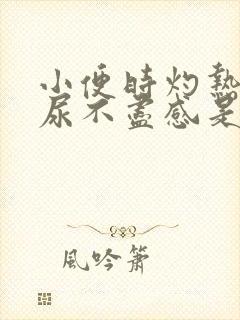 小便時灼熱
尿不盡感是
風吟簫